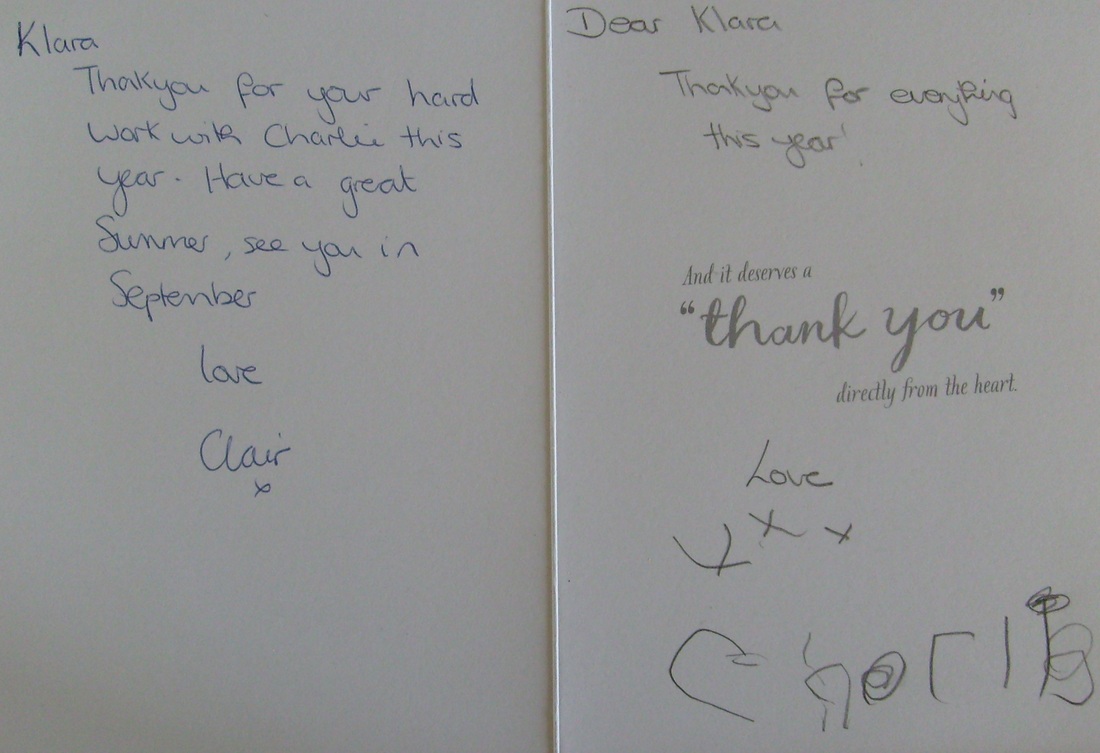 Klara
Thakyou for your hard
work with Charlie this
year. Have a great
Summer, see you in
September
love
Clair
x
Dear Klara
Thankyou for everything
this year!
And it deserves a
“thank you”
directly from the heart.
Love
x x x
Charlie